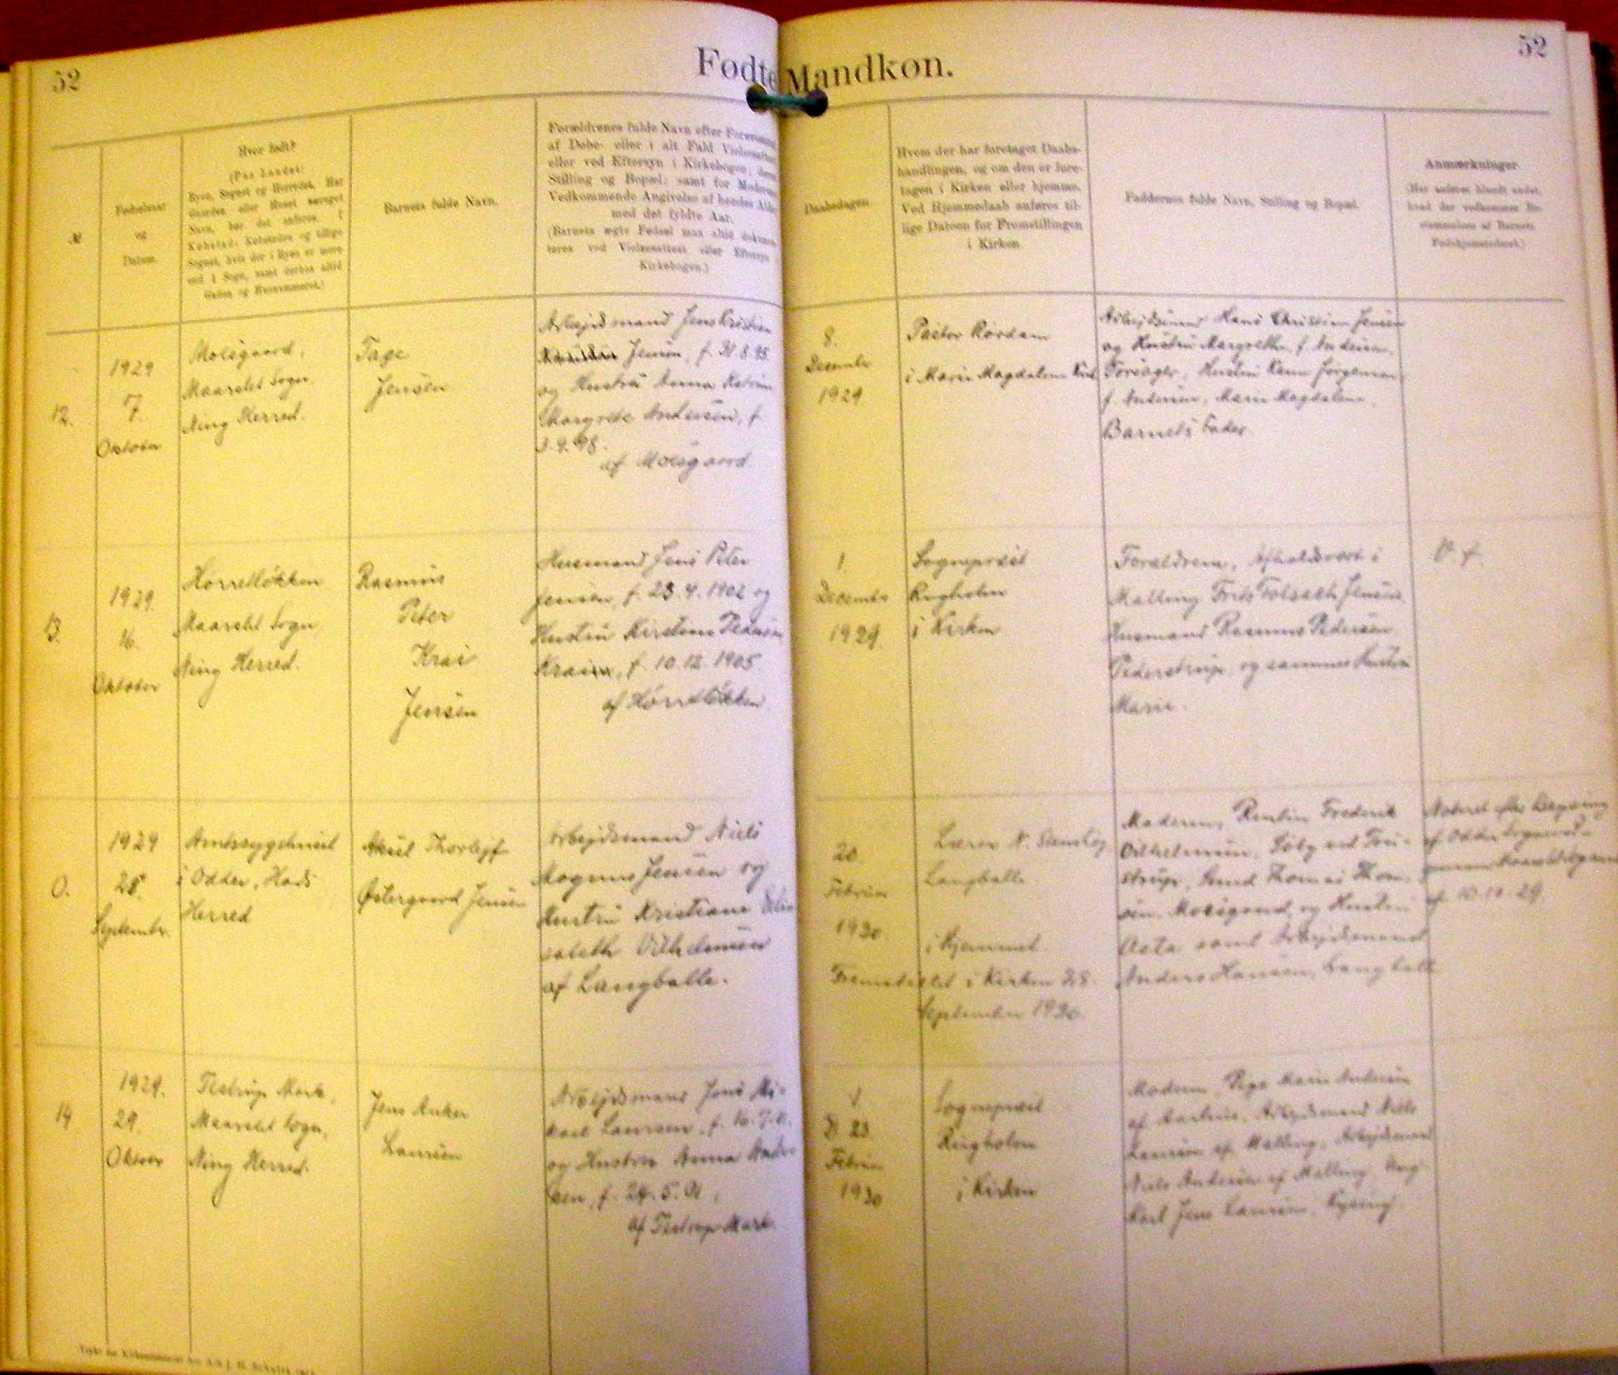 52
Fødte Mandkøn.
52
№
Fødselsaar
og
Datum.
Hvor født?
(Paa Landet:
Byen, Sognet og Herredet. Har
Gaarden eller Huset særeget
Navn, bør det anføres. I
Købstad: Købstaden og tillige
Sognet, hvis der i Byen er mere
end 1 Sogn, samt derhos altid
Gaden og Husnummeret.)
Barnets fulde Navn.
Forældrenes fulde Navn efter Forevisning
af Døbe- eller i alt Fald Vielsesattest
eller ved Eftersyn i Kirkebogen; deres
Stilling og Bopæl; samt for Moderens
Vedkommende Angivelse af hendes Alder
med det fyldte Aar.
(Barnets ægte Fødsel maa altid dokumen-
teres ved Vielsesattest eller Eftersyn
Kirkebogen.)
Daabsdagen.
Hvem der har foretaget Daabs-
handlingen, og om den er fore-
tagen i Kirken eller hjemme.
Ved Hjemmedaab anføres til-
lige Datoen for Fremstillingen
i Kirken.
Faddernes fulde Navn, Stilling og Bopæl.
Anmærkninger.
(Her anføres blandt andet,
hvad der vedkommer Be-
stemmelsen af Barnets
Fødehjemstedsret.)
12.
1929
7.
Oktober
Moesgaard,
Maarslet Sogn
Ning Herred.
Tage
Jensen
Arbejdsmand Jens Kristian
Jensen, f. 31.8.95
og Hustru Anna Katrine
Margrete Andersen, f.
3.9.98.
af Moesgaard
8.
December
1929
Pastor Rørdam
i Marie Magdalene Kirke
Arbejdsmand Hans Christian Jensen
og Hustru Margrethe, f. Andersen,
Hustru Jørgensen
f. Andersen, Marie Magdalene,
Barnets Fader
13.
1929
16.
Oktober
Hørretløkken
Maarslet Sogn
Ning Herred.
Rasmus
Peter
Krai
Jensen
Husmand Jens Peter
Jensen, f. 23.4.1902 og
Hustru Kirstine Pedersen
f. 10.12.1905
af Hørretløkken
1.
December
1929
Sognepræst
Ringholm
i Kirken
Forældrene, Afholdsvært i
Malling Jensen
Husmand Rasmus Pedersen
Pederstrup og sammes Hustru
Marie.
O.
1929
28.
September
Amtssygehuset
i Odder, Hads
Herred
Aksel Thorlejf
Østergaard Jensen
Arbejdsmand Niels
Mogens Jensen og
Hustru Kristiane Elisa-
beth Vilhelmsen
af Langballe.
20.
Februar
1930
Lærer N.
Langballe
i Hjemmet
Fremstillet i Kirken 28.
September 1930.
Moderen, Rentier Frederik
Vilhelmsen, ved Tru-
strup, Smed Thomas Thom-
sen, Moesgaard, og Hustru
Asta samt Arbejdsmand
Anders Hansen, Langballe
Noteret efter
af Odder Sogn
af 10-10-29.
14
1929.
29.
Oktober
Testrup Mark,
Maarslet Sogn,
Ning Herred.
Jens Anker
Laursen
Arbejdsmand Jens Mi-
kael Laursen, f. 16.7.
og Hustru Anna Ander-
sen, f. 24.5.01,
af Testrup Mark.
23
Februar
1930
Sognepræst
Ringholm
i Kirken
Moderen, Pige Marie Andersen
af Aarhus, Arbejdsmand Niels
Laursen af Malling, Arbejdsmand
Niels Andersen af Malling, Ung-
karl Jens Laursen,